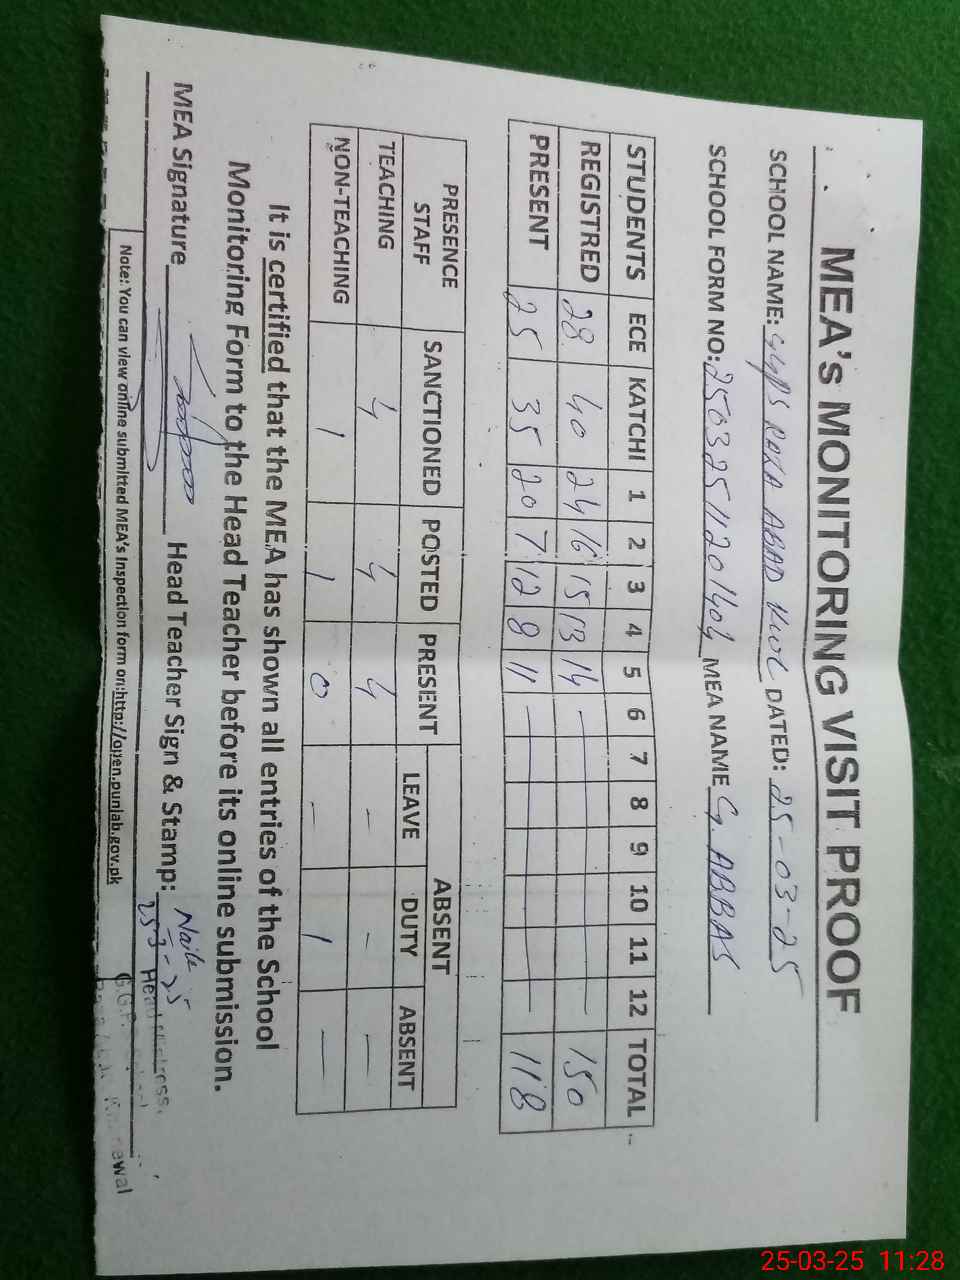 MEA's MONITORING VISIT PROOF
SCHOOL NAME: GGPS RAZA ABAD KWL DATED: 25-03-25
SCHOOL FORM NO: 25032511201404 MEA NAME G. ABBAS
STUDENTS ECE KATCHI 1 2 3 4 5 6 7 8 9 10 11 12 TOTAL
REGISTRED 28 40 24 16 15 13 14 — — 150
PRESENT 25 35 20 7 12 8 11 — — 118
PRESENCE STAFF SANCTIONED POSTED PRESENT ABSENT
LEAVE DUTY ABSENT
TEACHING 4 4 4 - - —
NON-TEACHING 1 1 0 - 1 —
It is certified that the MEA has shown all entries of the School
Monitoring Form to the Head Teacher before its online submission.
MEA Signature Head Teacher Sign & Stamp: Naila
25-3-25
Headmistress
G.G.P.
Note: You can view online submitted MEA's Inspection form on:http://open.punjab.gov.pk
25-03-25 11:28